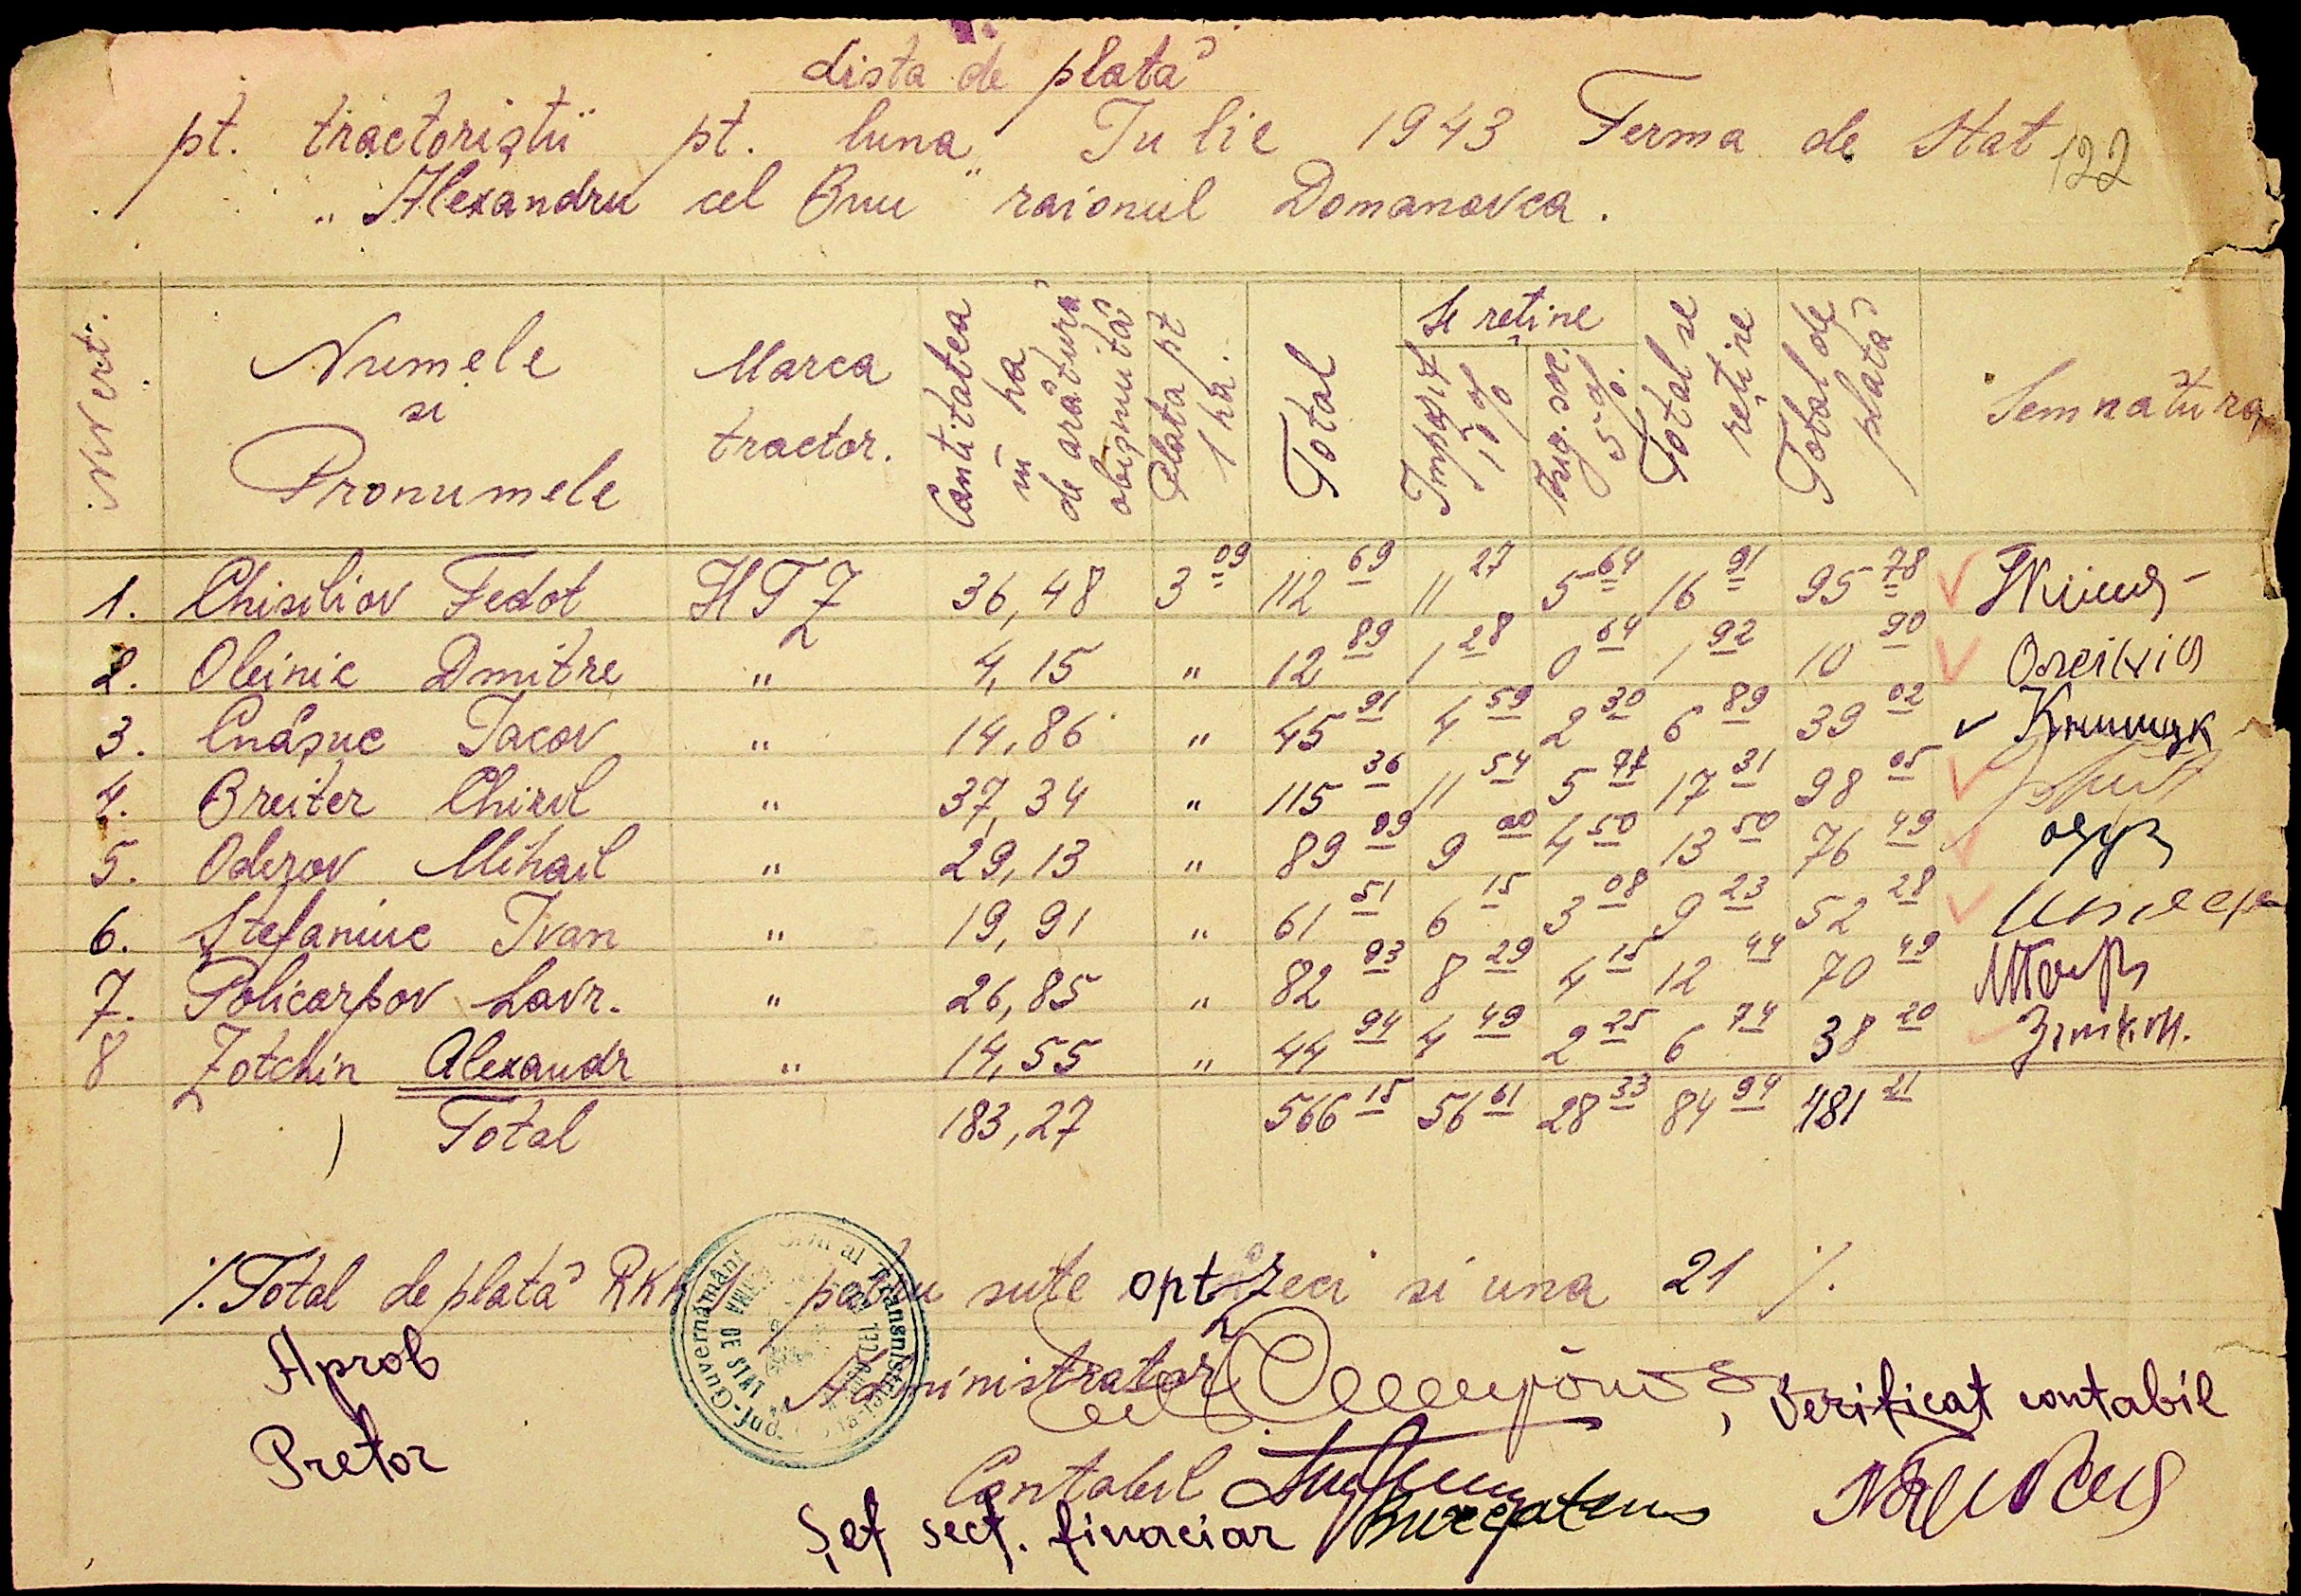 Lista de plată
pt. tractoriștii pt. luna Iulie 1943 Ferma de Stat
122
„Alexandru cel Bun" raionul Domanovca.
Nr crt. Numele si Pronumele Marca tractor. Cantitatea în ha de arătură obișnuită Plata pt 1 ha. Total Se reține Impozit 10% Asig. soc. 5% Total se reține Total de plată Semnătura
1. Chisiliov Fedot HTZ 36,48 3 09 112 69 11 27 5 64 16 91 95 78
2. Oleinic Dmitre " 4,15 " 12 89 1 28 0 64 1 92 10 90
3. Cnășuc Iacov " 14,86 " 45 91 4 59 2 30 6 89 39 02
4. Breiter Chiril " 37,34 " 115 36 11 54 5 77 17 31 98 05
5. Oderov Mihail " 29,13 " 89 99 9 00 4 50 13 50 76 49
6. Ștefaniuc Ivan " 19,91 " 61 51 6 15 3 08 9 23 52 28
7. Policarpov Lavr. " 26,85 " 82 93 8 29 4 15 12 44 70 49
8 Zotchin Alexandr " 14,55 " 44 94 4 49 2 25 6 74 38 20
Total 183,27 566 15 56 61 28 33 84 94 481 21
%. Total de plată RKK patru sute optzeci si una 21 %.
Aprob
Administrator
Verificat contabil
Pretor
Contabil
Șef sect. finaciar
Guvernământ Transnistri
DE STAT